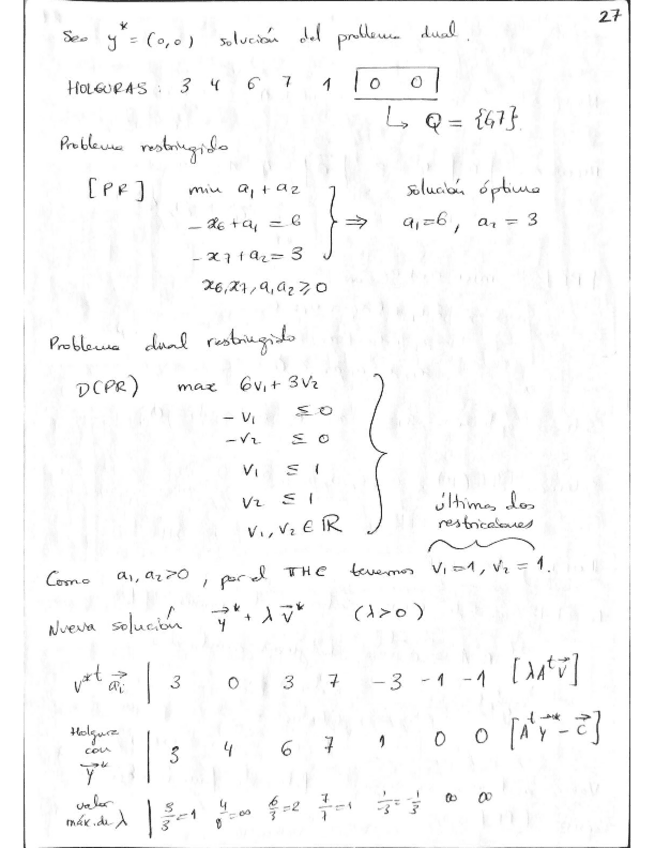 27
Sea y* = (0,0) solución del problema dual.
HOLGURAS: 3 4 6 7 1 0 0
↳ Q = {6,7}.
Problema restringido
[PR] min a₁ + a₂ solución óptima
-x₆ + a₁ = 6 ⇒ a₁=6, a₂ = 3
-x₇ + a₂ = 3
x₆, x₇, a₁ a₂ ≥ 0
Problema dual restringido
D(PR) max 6v₁ + 3v₂
-v₁ ≤ 0
-v₂ ≤ 0
v₁ ≤ 1
v₂ ≤ 1
v₁, v₂ ∈ ℝ
últimas dos
restricciones
Como a₁, a₂>0, por el THC tenemos v₁=1, v₂ = 1.
Nueva solución y* + λ v* (λ>0)
v*ᵗ aᵢ | 3 0 3 7 -3 -1 -1 [λAᵗv]
Holgura con y* | 3 4 6 7 1 0 0 [Aᵗy* - c]
valor máx. de λ | 3/3=1 4/0=∞ 6/3=2 7/7=1 1/-3=-1/3 ∞ ∞